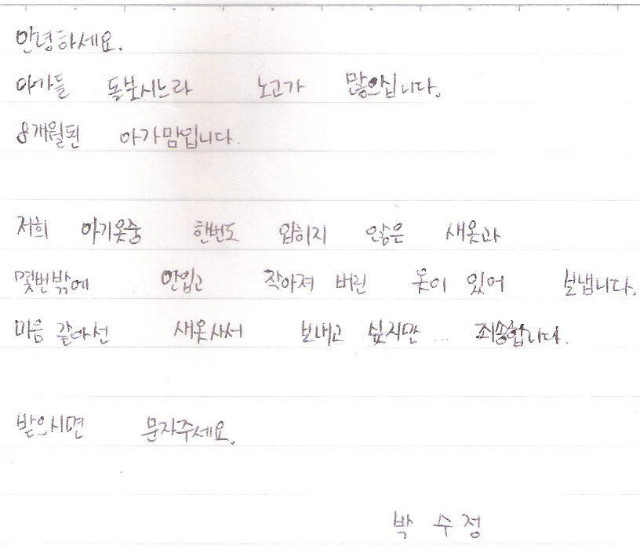 안녕하세요.
아가들 돌보시느라 노고가 많으십니다.
8개월된 아가맘입니다.
저희 아기옷중 한번도 입히지 않은 새옷과
몇번밖에 안입고 작아져 버린 옷이 있어 보냅니다.
마음 같아선 새옷사서 보내고 싶지만... 죄송합니다.
받으시면 문자주세요.
박수정